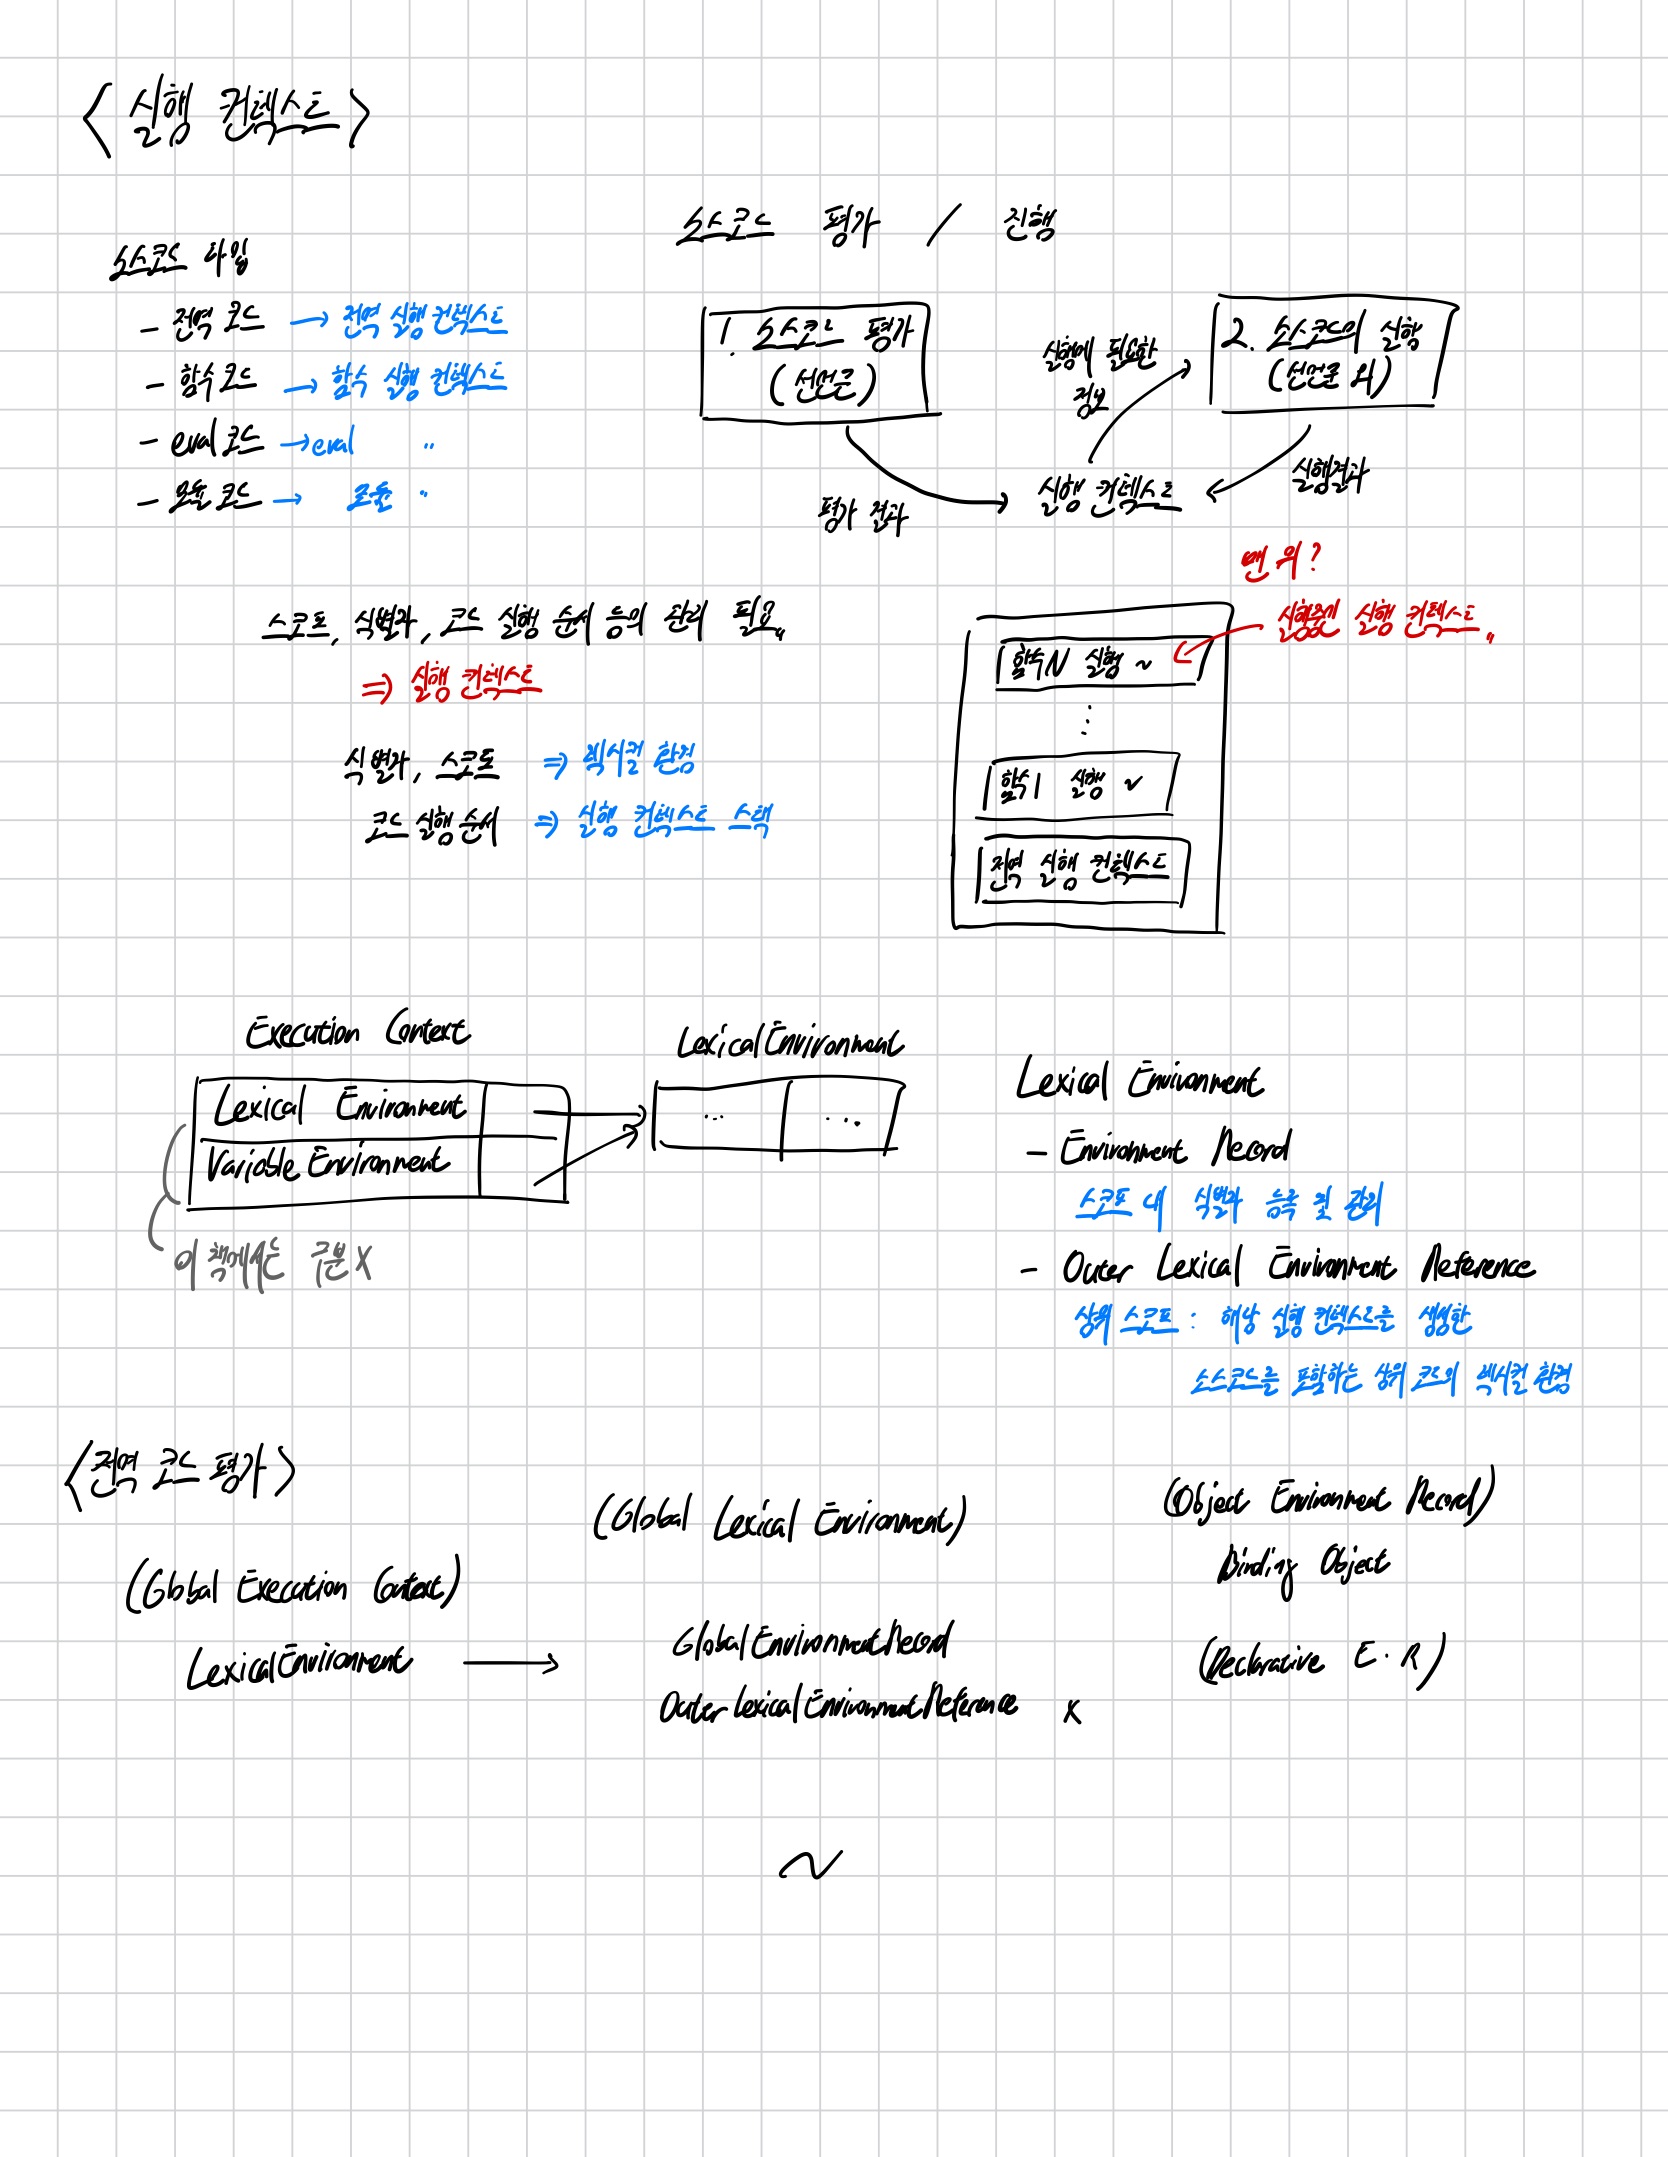 <실행 컨텍스트>
소스코드 타입
- 전역 코드 → 전역 실행 컨텍스트
- 함수 코드 → 함수 실행 컨텍스트
- eval 코드 → eval 〃
- 모듈 코드 → 모듈 〃
소스코드 평가 / 진행
1. 소스코드 평가
(선언문)
실행에 필요한
정보
2. 소스코드의 실행
(선언문 외)
평가 결과
실행 컨텍스트
실행결과
스코프, 식별자, 코드 실행 순서 등의 관리 필요.
⇒ 실행 컨텍스트
식별자, 스코프 ⇒ 렉시컬 환경
코드 실행 순서 ⇒ 실행 컨텍스트 스택
맨 위?
실행중인 실행 컨텍스트.
함수N 실행 ~
⋮
함수1 실행 ~
전역 실행 컨텍스트
Execution Context
Lexical Environment
Variable Environment
이 책에서는 구분 X
LexicalEnvironment
... ...
Lexical Environment
- Environment Record
스코프 내 식별자 등록 및 관리
- Outer Lexical Environment Reference
상위 스코프 : 해당 실행 컨텍스트를 생성한
소스코드를 포함하는 상위 코드의 렉시컬 환경
<전역 코드 평가>
(Global Execution Context)
LexicalEnvironment →
(Global Lexical Environment)
GlobalEnvironmentRecord
OuterLexicalEnvironmentReference X
(Object Environment Record)
Binding Object
(Declarative E.R)
~